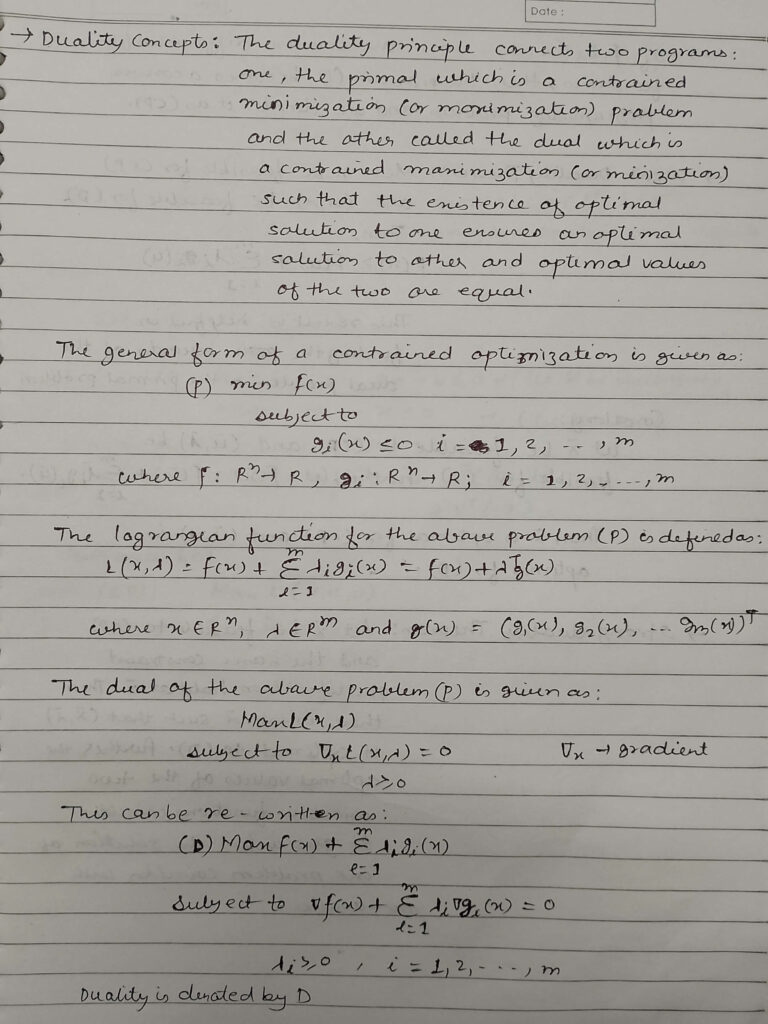 Date :
→ Duality Concepts: The duality principle connects two programs:
one, the primal which is a contrained
minimization (or maximization) problem
and the other called the dual which is
a contrained maximization (or minization)
such that the existence of optimal
solution to one ensures an optimal
solution to other and optimal values
of the two are equal.
The general form of a contrained optimization is given as:
(P) min f(x)
subject to
gᵢ(x) ≤ 0 i = 1, 2, ..., m
where f: Rⁿ → R, gᵢ: Rⁿ → R; i = 1, 2, ...., m
The lagrangean function for the above problem (P) is defined as:
L(x,λ) = f(x) + Σ λᵢgᵢ(x) = f(x) + λᵀg(x)
m
i=1
where x ∈ Rⁿ, λ ∈ Rᵐ and g(x) = (g₁(x), g₂(x), ... gₘ(x))ᵀ
The dual of the above problem (P) is given as:
Max L(x,λ)
subject to ∇ₓ L(x,λ) = 0 ∇ₓ → gradient
λ ≥ 0
This can be re-written as:
m
(D) Max f(x) + Σ λᵢgᵢ(x)
i=1
m
subject to ∇f(x) + Σ λᵢ∇gᵢ(x) = 0
i=1
λᵢ ≥ 0 , i = 1, 2, ..., m
Duality is denoted by D